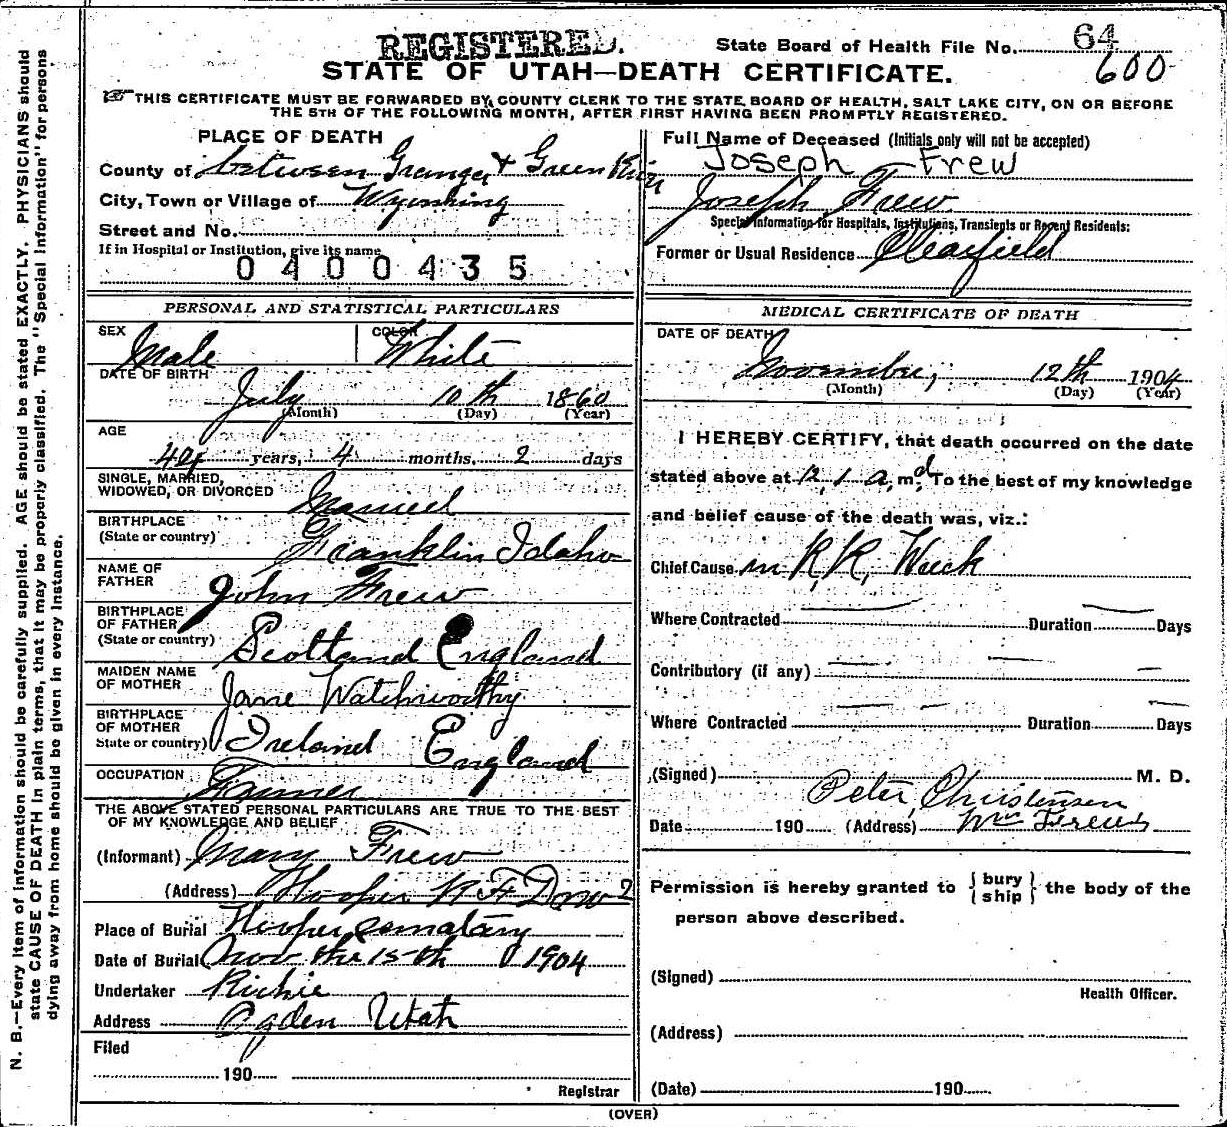 REGISTERED.
State Board of Health File No. 64
600
STATE OF UTAH—DEATH CERTIFICATE.
THIS CERTIFICATE MUST BE FORWARDED BY COUNTY CLERK TO THE STATE BOARD OF HEALTH, SALT LAKE CITY, ON OR BEFORE
THE 5TH OF THE FOLLOWING MONTH, AFTER FIRST HAVING BEEN PROMPTLY REGISTERED.
N. B.—Every item of information should be carefully supplied. AGE should be stated EXACTLY. PHYSICIANS should
state CAUSE OF DEATH in plain terms, that it may be properly classified. The "Special Information" for persons
dying away from home should be given in every instance.
PLACE OF DEATH
County of between Granger & Green River
City, Town or Village of Wyoming
Street and No.
If in Hospital or Institution, give its name
0400435
PERSONAL AND STATISTICAL PARTICULARS
SEX Male COLOR White
DATE OF BIRTH
July 10th 1860
(Month) (Day) (Year)
AGE
44 years, 4 months, 2 days
SINGLE, MARRIED,
WIDOWED, OR DIVORCED Married
BIRTHPLACE
(State or country) Franklin Idaho
NAME OF
FATHER John Frew
BIRTHPLACE
OF FATHER
(State or country) Scotland England
MAIDEN NAME
OF MOTHER Jane
BIRTHPLACE
OF MOTHER
State or country) Ireland England
OCCUPATION Farmer
THE ABOVE STATED PERSONAL PARTICULARS ARE TRUE TO THE BEST
OF MY KNOWLEDGE AND BELIEF
(Informant) Mary Frew
(Address) Hooper R F D no 2
Place of Burial Hooper cematary
Date of Burial Nov the 15th 1904
Undertaker Richie
Address Ogden Utah
Filed
190
Registrar
Full Name of Deceased (Initials only will not be accepted)
Joseph Frew
Joseph Frew
Special Information for Hospitals, Institutions, Transients or Recent Residents:
Former or Usual Residence Clearfield
MEDICAL CERTIFICATE OF DEATH
DATE OF DEATH
November, 12th 1904
(Month) (Day) (Year)
I HEREBY CERTIFY, that death occurred on the date
stated above at 12,1 a, m. To the best of my knowledge
and belief cause of the death was, viz.:
Chief Cause in R,R, Wreck
Where Contracted Duration Days
Contributory (if any)
Where Contracted Duration Days
(Signed) M. D.
Peter Christensen
Date 190 (Address)
Permission is hereby granted to { bury ship } the body of the
person above described.
(Signed)
Health Officer.
(Address)
(Date) 190
(OVER)